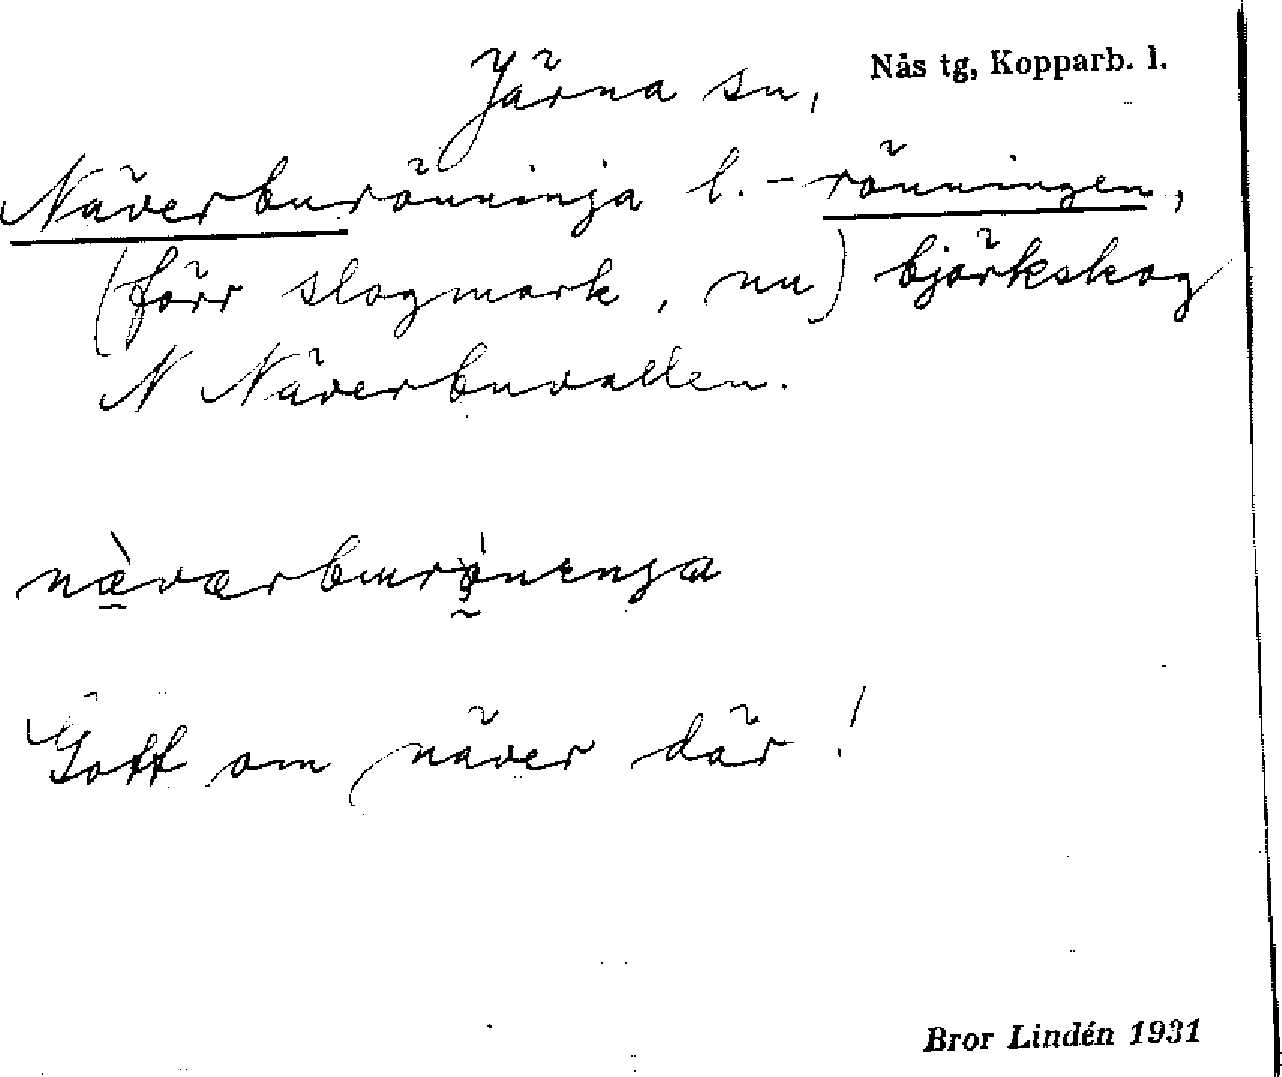 Järna sn, Nås tg, Kopparb. l.
Näverburönninja l. -rönningen,
(förr slogmark, nu) björkskog
N Näverbuvallen.
Gott om näver där!
Bror Lindén 1931